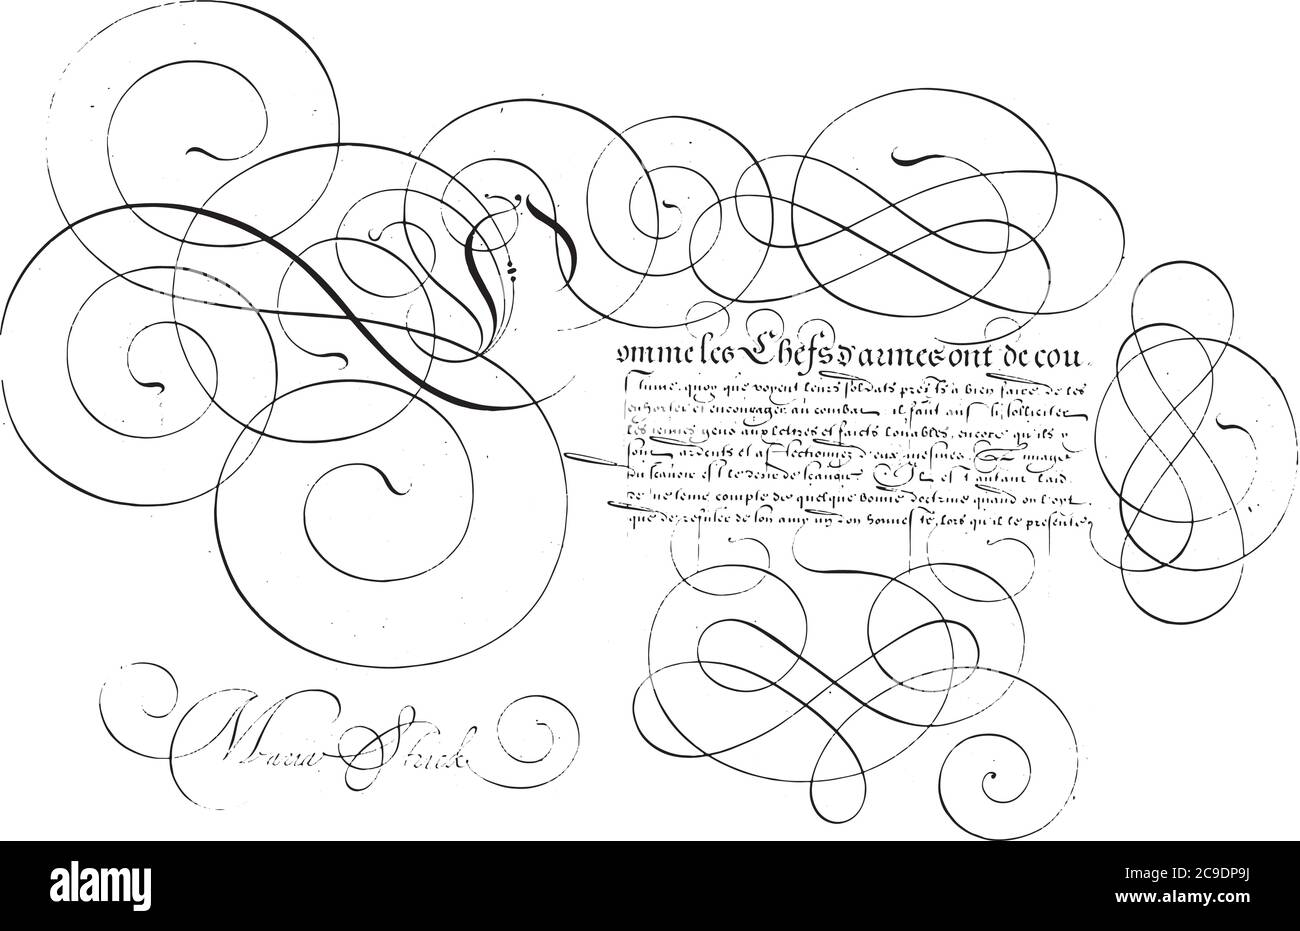 omme les Chefs d'armes ont de cou-
stume, quoy que voyent leurs soldats prests à bien faire, de les
enhorter et encourager au combat, il faut aussi solliciter
les jeunes gens aux lettres et faicts louables, encore qu'ils y
sont ardents et affectionnez d'eux mesmes.
du scavoir est le desir de scavoir. Il est autant laid
de ne tenir compte de quelque bonne doctrine quand on l'oyt
que de refuser de son amy un don honneste, lors qu'il le presente,
Maria Strick
alamy
Image ID: 2C9DP9J
www.alamy.com